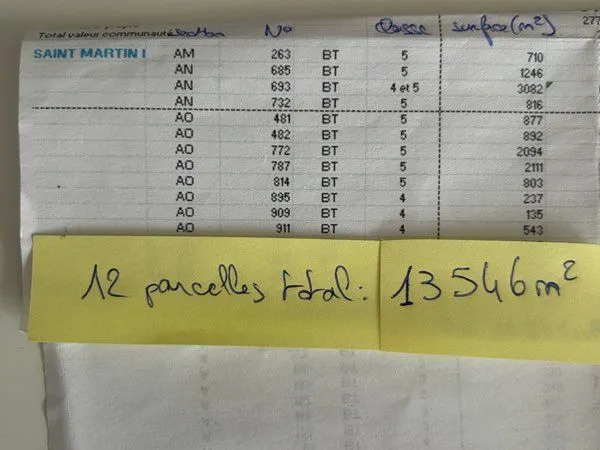 Total valeur communauté Section N° Classe surface (m²) 277
SAINT MARTIN I AM 263 BT 5 710
AN 685 BT 5 1246
AN 693 BT 4 et 5 3082
AN 732 BT 5 816
AO 481 BT 5 877
AO 482 BT 5 892
AO 772 BT 5 2094
AO 787 BT 5 2111
AO 814 BT 5 803
AO 895 BT 4 237
AO 909 BT 4 135
AO 911 BT 4 543
12 parcelles total: 13 546 m²